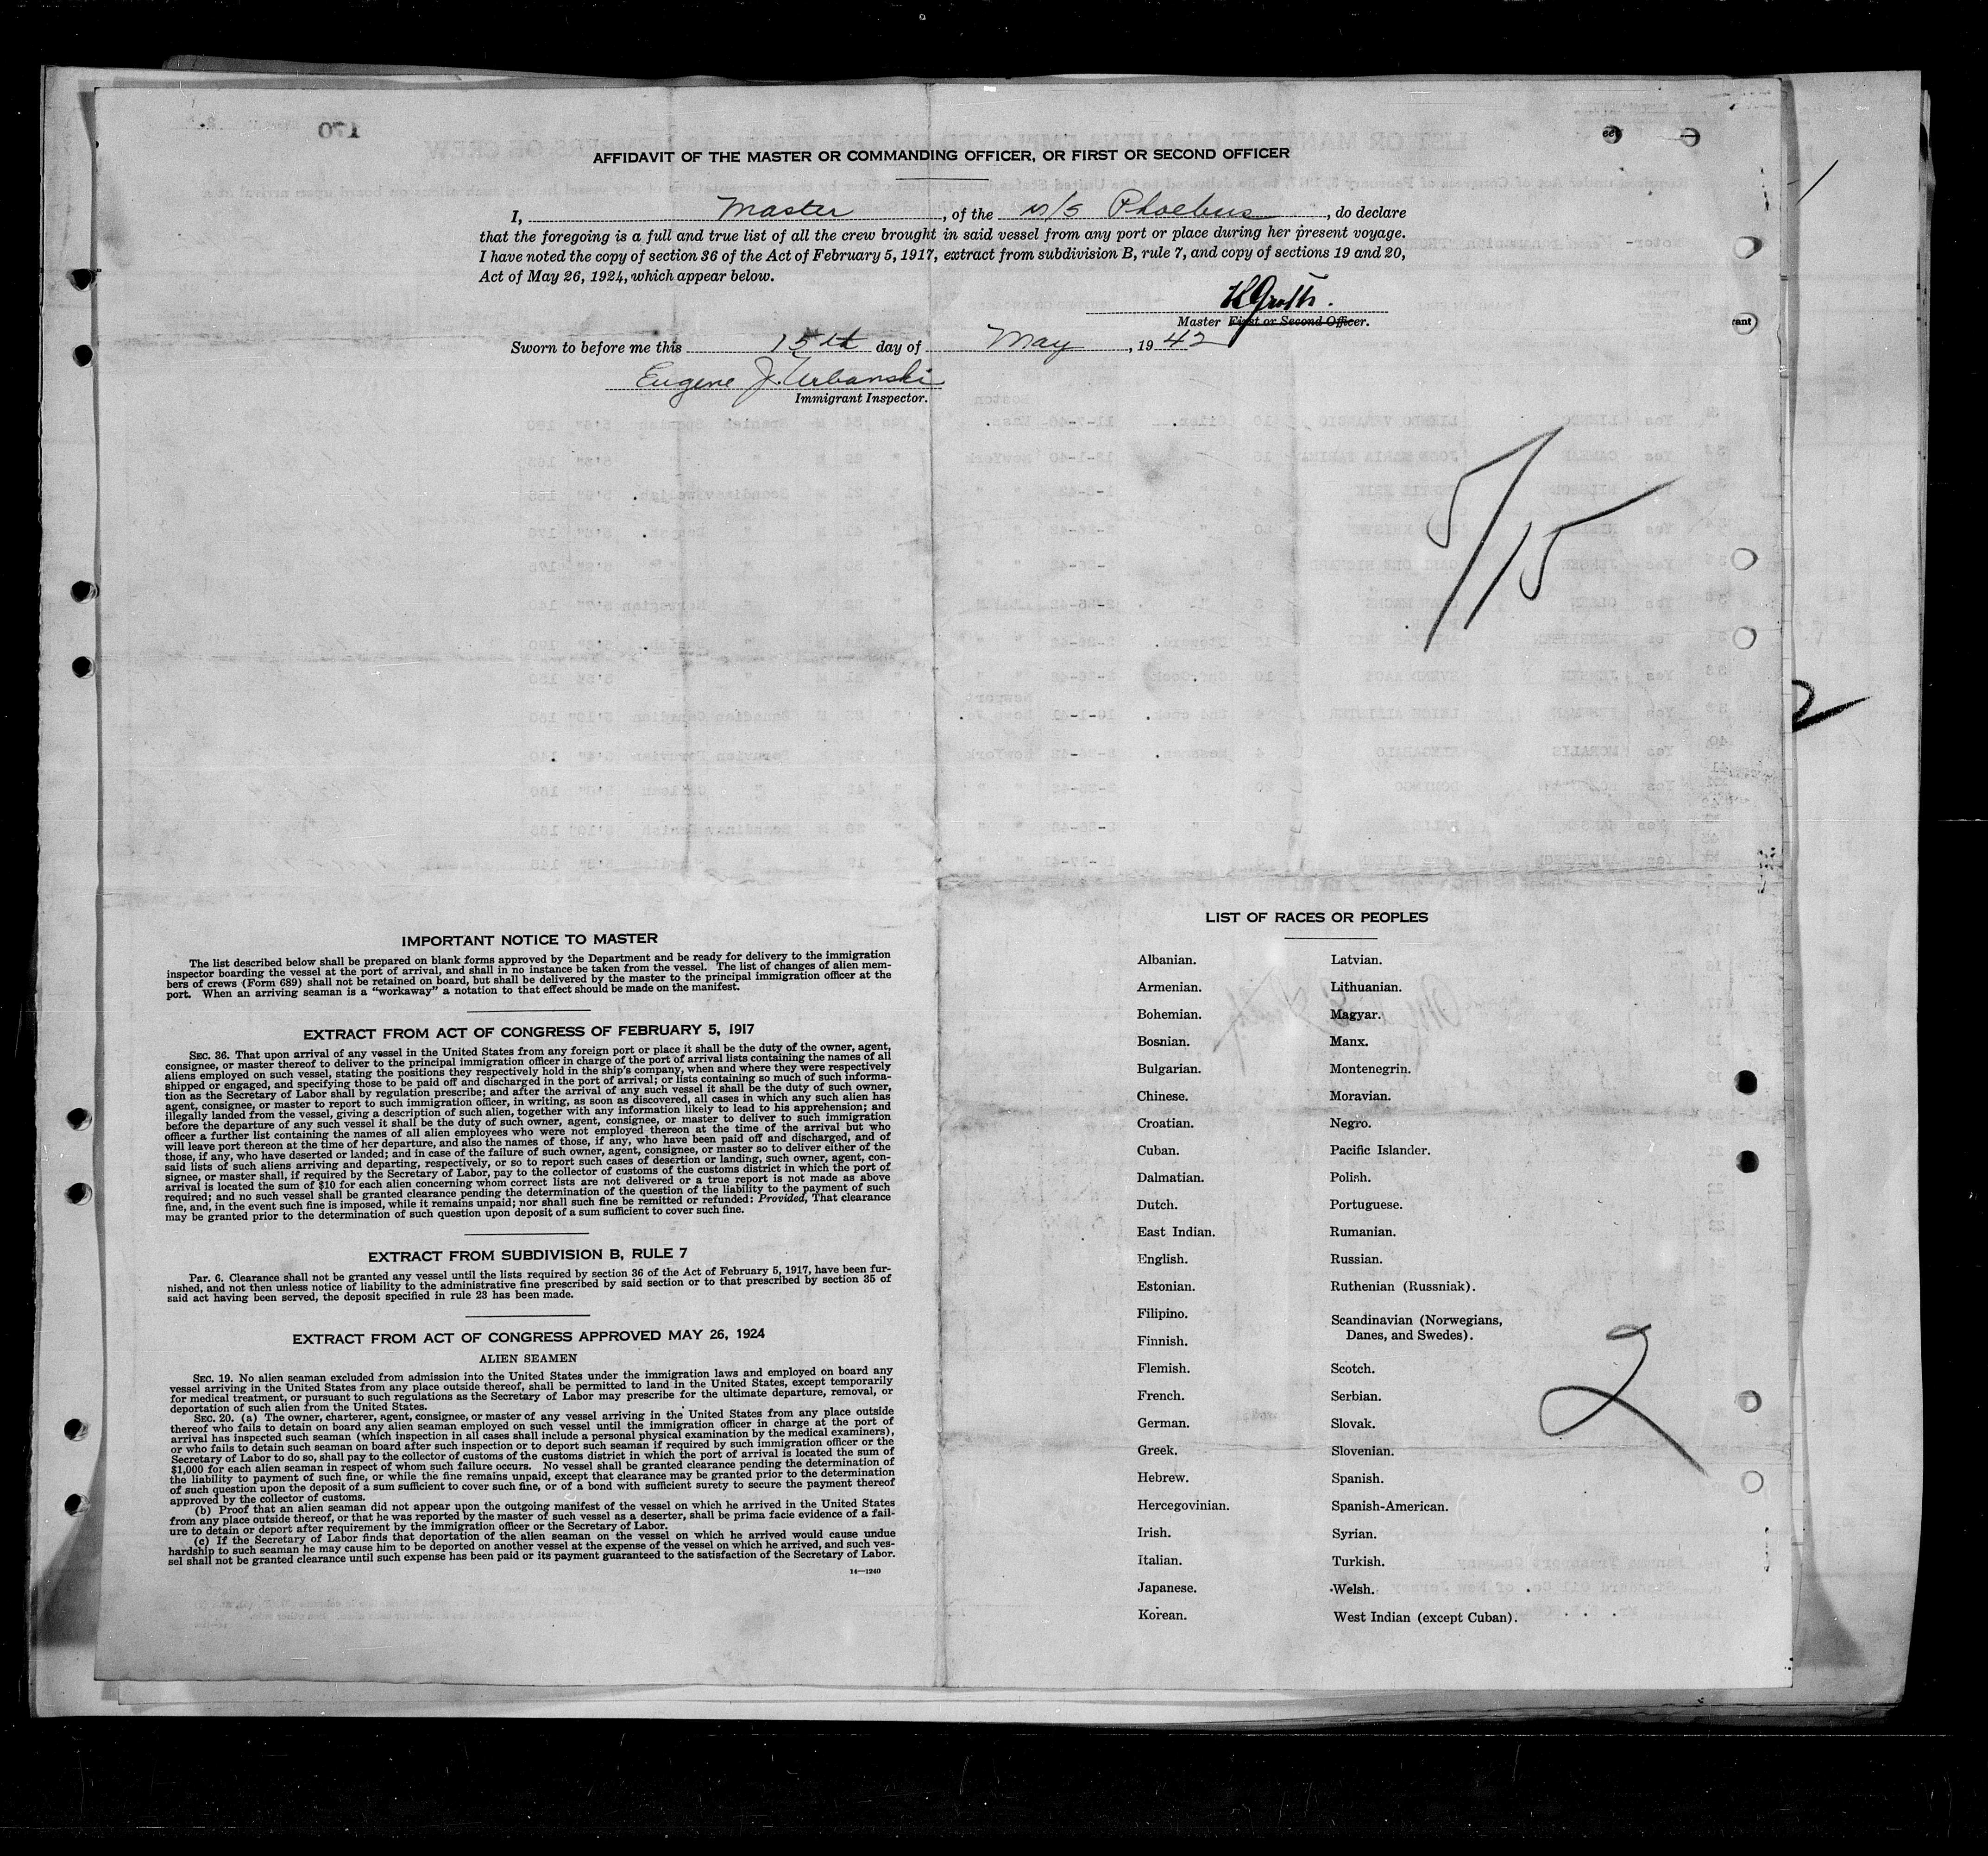 AFFIDAVIT OF THE MASTER OR COMMANDING OFFICER, OR FIRST OR SECOND OFFICER
I, Master, of the M/S Phoebus, do declare
that the foregoing is a full and true list of all the crew brought in said vessel from any port or place during her present voyage.
I have noted the copy of section 36 of the Act of February 5, 1917, extract from subdivision B, rule 7, and copy of sections 19 and 20,
Act of May 26, 1924, which appear below.
Master First or Second Officer.
Sworn to before me this 15th day of May, 1942
Eugene J. Urbanski
Immigrant Inspector.
5/15
2
IMPORTANT NOTICE TO MASTER
The list described below shall be prepared on blank forms approved by the Department and be ready for delivery to the immigration
inspector boarding the vessel at the port of arrival, and shall in no instance be taken from the vessel. The list of changes of alien mem-
bers of crews (Form 689) shall not be retained on board, but shall be delivered by the master to the principal immigration officer at the
port. When an arriving seaman is a “workaway” a notation to that effect should be made on the manifest.
EXTRACT FROM ACT OF CONGRESS OF FEBRUARY 5, 1917
SEC. 36. That upon arrival of any vessel in the United States from any foreign port or place it shall be the duty of the owner, agent,
consignee, or master thereof to deliver to the principal immigration officer in charge of the port of arrival lists containing the names of all
aliens employed on such vessel, stating the positions they respectively hold in the ship's company, when and where they were respectively
shipped or engaged, and specifying those to be paid off and discharged in the port of arrival; or lists containing so much of such informa-
tion as the Secretary of Labor shall by regulation prescribe; and after the arrival of any such vessel it shall be the duty of such owner,
agent, consignee, or master to report to such immigration officer, in writing, as soon as discovered, all cases in which any such alien has
illegally landed from the vessel, giving a description of such alien, together with any information likely to lead to his apprehension; and
before the departure of any such vessel it shall be the duty of such owner, agent, consignee, or master to deliver to such immigration
officer a further list containing the names of all alien employees who were not employed thereon at the time of the arrival but who
will leave port thereon at the time of her departure, and also the names of those, if any, who have been paid off and discharged, and of
those, if any, who have deserted or landed; and in case of the failure of such owner, agent, consignee, or master so to deliver either of the
said lists of such aliens arriving and departing, respectively, or so to report such cases of desertion or landing, such owner, agent, con-
signee, or master shall, if required by the Secretary of Labor, pay to the collector of customs of the customs district in which the port of
arrival is located the sum of $10 for each alien concerning whom correct lists are not delivered or a true report is not made as above
required; and no such vessel shall be granted clearance pending the determination of the question of the liability to the payment of such
fine, and, in the event such fine is imposed, while it remains unpaid; nor shall such fine be remitted or refunded: Provided, That clearance
may be granted prior to the determination of such question upon deposit of a sum sufficient to cover such fine.
EXTRACT FROM SUBDIVISION B, RULE 7
Par. 6. Clearance shall not be granted any vessel until the lists required by section 36 of the Act of February 5, 1917, have been fur-
nished, and not then unless notice of liability to the administrative fine prescribed by said section or to that prescribed by section 35 of
said act having been served, the deposit specified in rule 23 has been made.
EXTRACT FROM ACT OF CONGRESS APPROVED MAY 26, 1924
ALIEN SEAMEN
SEC. 19. No alien seaman excluded from admission into the United States under the immigration laws and employed on board any
vessel arriving in the United States from any place outside thereof, shall be permitted to land in the United States, except temporarily
for medical treatment, or pursuant to such regulations as the Secretary of Labor may prescribe for the ultimate departure, removal, or
deportation of such alien from the United States.
SEC. 20. (a) The owner, charterer, agent, consignee, or master of any vessel arriving in the United States from any place outside
thereof who fails to detain on board any alien seaman employed on such vessel until the immigration officer in charge at the port of
arrival has inspected such seaman (which inspection in all cases shall include a personal physical examination by the medical examiners),
or who fails to detain such seaman on board after such inspection or to deport such seaman if required by such immigration officer or the
Secretary of Labor to do so, shall pay to the collector of customs of the customs district in which the port of arrival is located the sum of
$1,000 for each alien seaman in respect of whom such failure occurs. No vessel shall be granted clearance pending the determination of
the liability to payment of such fine, or while the fine remains unpaid, except that clearance may be granted prior to the determination
of such question upon the deposit of a sum sufficient to cover such fine, or of a bond with sufficient surety to secure the payment thereof
approved by the collector of customs.
(b) Proof that an alien seaman did not appear upon the outgoing manifest of the vessel on which he arrived in the United States
from any place outside thereof, or that he was reported by the master of such vessel as a deserter, shall be prima facie evidence of a fail-
ure to detain or deport after requirement by the immigration officer or the Secretary of Labor.
(c) If the Secretary of Labor finds that deportation of the alien seaman on the vessel on which he arrived would cause undue
hardship to such seaman he may cause him to be deported on another vessel at the expense of the vessel on which he arrived, and such ves-
sel shall not be granted clearance until such expense has been paid or its payment guaranteed to the satisfaction of the Secretary of Labor.
14—1240
LIST OF RACES OR PEOPLES
Albanian.
Armenian.
Bohemian.
Bosnian.
Bulgarian.
Chinese.
Croatian.
Cuban.
Dalmatian.
Dutch.
East Indian.
English.
Estonian.
Filipino.
Finnish.
Flemish.
French.
German.
Greek.
Hebrew.
Hercegovinian.
Irish.
Italian.
Japanese.
Korean.
Latvian.
Lithuanian.
Magyar.
Manx.
Montenegrin.
Moravian.
Negro.
Pacific Islander.
Polish.
Portuguese.
Rumanian.
Russian.
Ruthenian (Russniak).
Scandinavian (Norwegians,
Danes, and Swedes).
Scotch.
Serbian.
Slovak.
Slovenian.
Spanish.
Spanish-American.
Syrian.
Turkish.
Welsh.
West Indian (except Cuban).
2